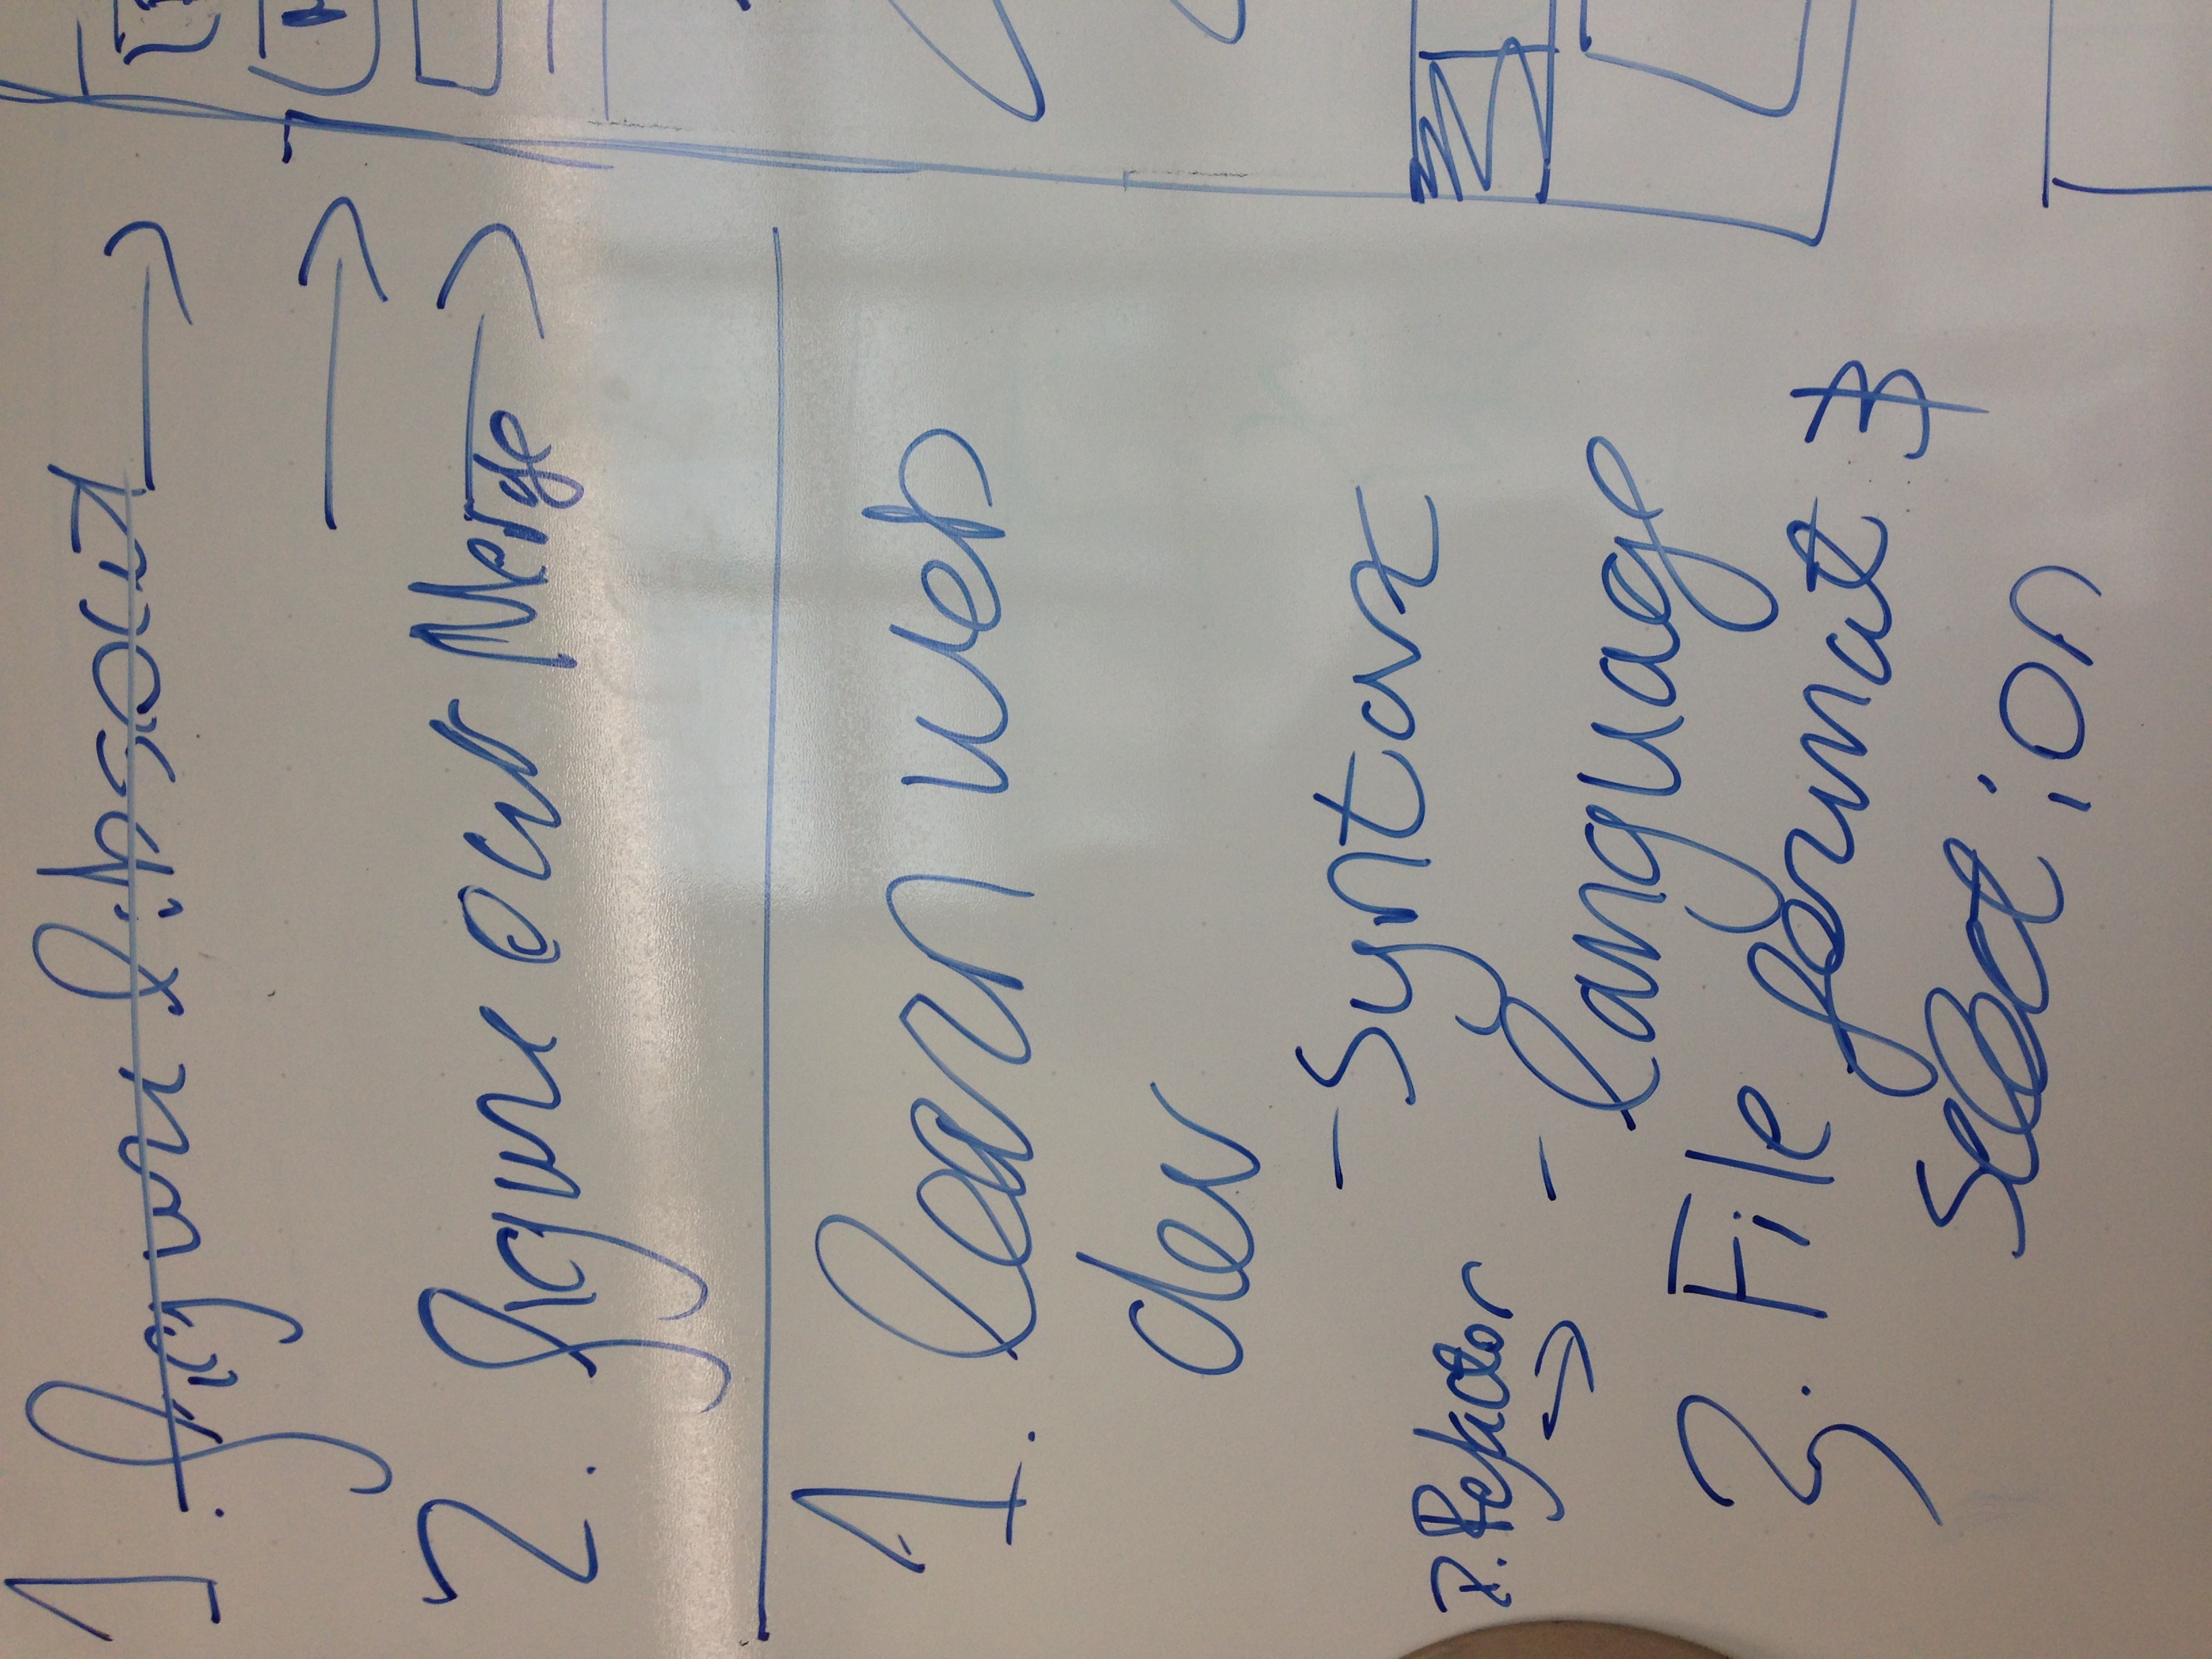 1. figure libs out
2. figure out Merge
1. learn web
dev
- Syntax
2. Refactor
- language
3. File format &
selection